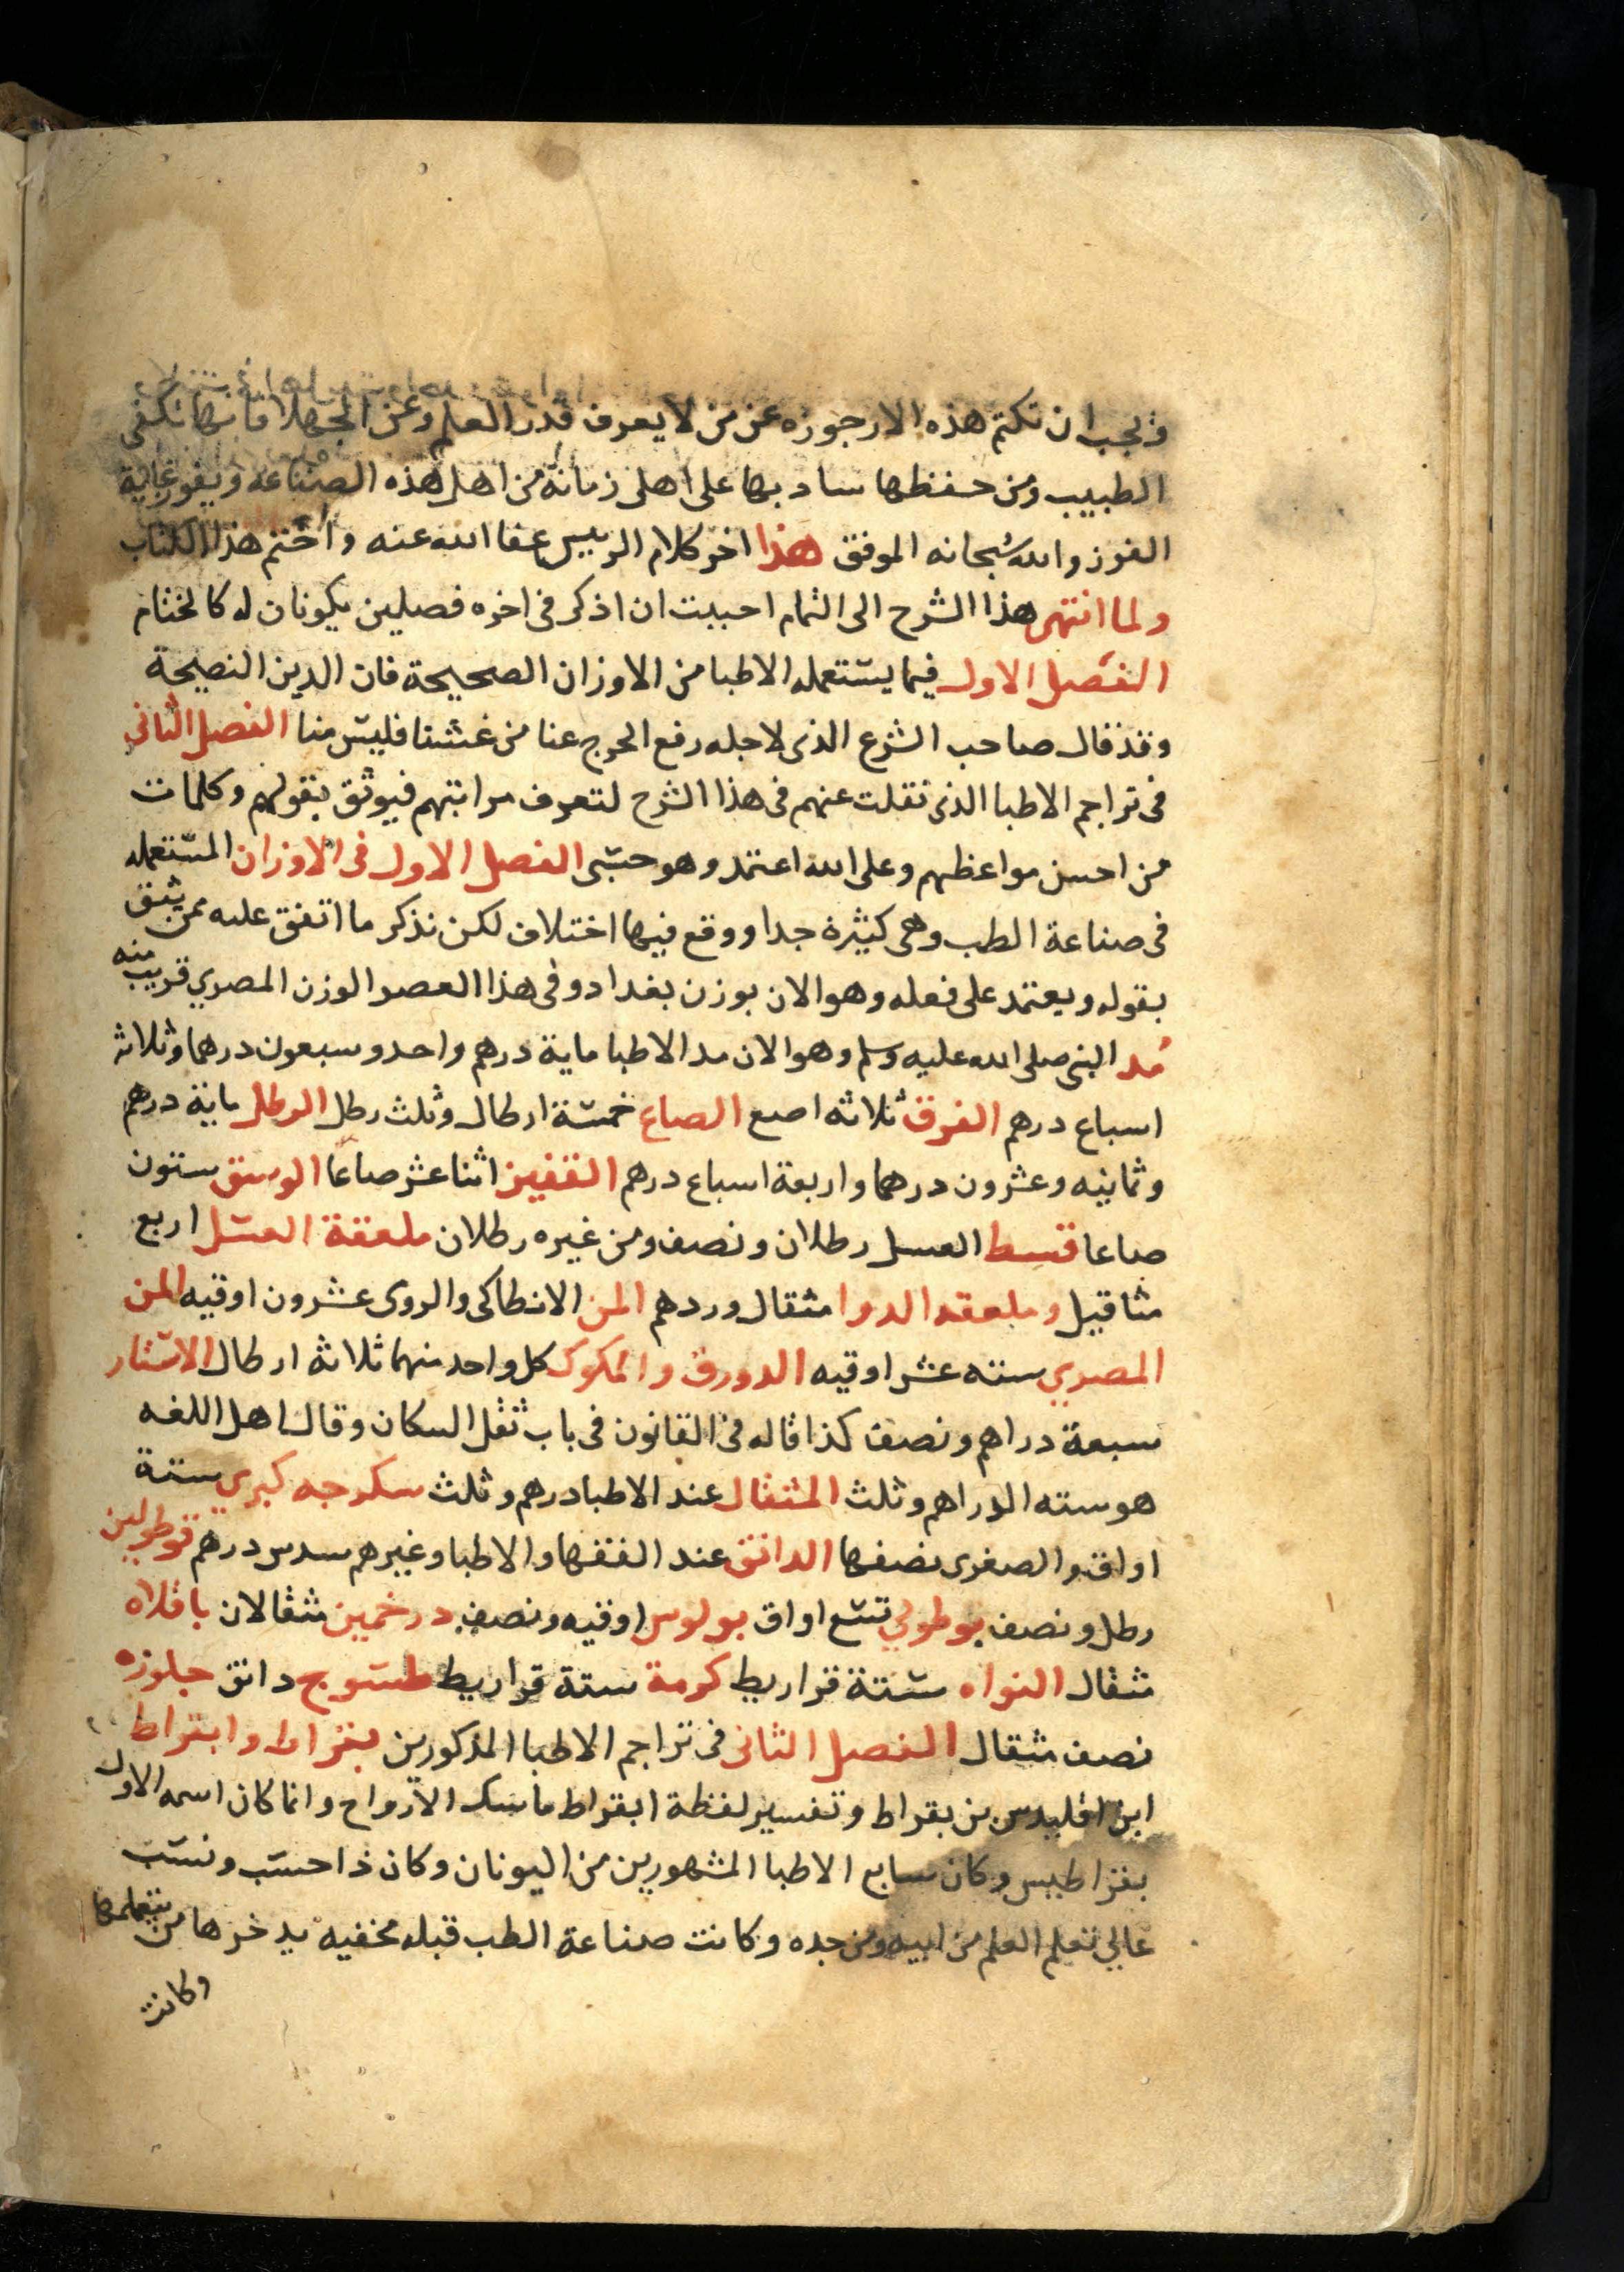 ويجب ان نكتم هذه الارجوزه عن من لا يعرف قدر العلم وعن الجهلا فانها تكفى
الطبيب ومن حفظها ساد بها على اهل زمانه من اهل هذه الصناعه ويفوز غاية
الفوز والله سبحانه الموفق هذا اخر كلام الرييس عفا الله عنه واختم هذا الكتاب
ولما انتهى هذا الشرح الى التمام احببت ان اذكر فى اخره فصلين يكونان له كالختام
الفصل الاول فيما يستعمله الاطبا من الاوزان الصحيحة فان الدين النصيحة
وقد قال صاحب الشرع الذى لاجله رفع الحرج عنا من غشنا فليس منا الفصل الثانى
فى تراجم الاطبا الذى نقلت عنهم فى هذا الشرح لتعرف مراتبهم فيوثق بقولهم وكلمات
من احسن مواعظهم وعلى الله اعتمد وهو حسبى الفصل الاول فى الاوزان المستعمله
فى صناعة الطب وهى كثيرة جدا ووقع فيها اختلاف لكن نذكر ما اتفق عليه ممن يثق
بقوله ويعتمد على فعله وهو الان بوزن بغداد وفى هذا العصر الوزن المصري قريب منه
مُد النبى صلى الله عليه وسلم وهو الان مد الاطبا ماية درهم واحد وسبعون درهما وثلاثه
اسباع درهم الفرق ثلاثه اصع الصاع خمسة ارطال وثلث رطل الرطل ماية درهم
وثمانيه وعشرون درهما واربعة اسباع درهم القفيز اثنا عشر صاعا الوسق ستون
صاعا قسط العسل رطلان ونصف ومن غيره رطلان ملعقة العسل اربع
مثاقيل وملعقه الدوا مثقال وردهم المن الانطاكى والرومى عشرون اوقيه المن
المصري سته عشر اوقيه الدورق والمكوك كل واحد منهما ثلاثه ارطال الاستار
سبعة دراهم ونصف كذا قاله فى القانون فى باب ثقل السكان وقال اهل اللغه
هو سته الدراهم وثلث المثقال عند الاطبا درهم وثلث سكرجه كبري ستة
اواق والصغرى نصفها الدانق عند الفقها والاطبا وغيرهم سدس درهم قوطولين
رطل ونصف بوطولي تسع اواق بولوس اوقيه ونصف درخمين مثقالان باقلاه
مثقال النواه ستة قراريط كرمة ستة قراريط طسوج دانق جلوزه
نصف مثقال الفصل الثانى فى تراجم الاطبا المذكورين بقراط وابقراط
ابن اقليدس بن بقراط وتفسير لفظة ابقراط ماسك الارواح وانما كان اسمه الاول
بقراطيس وكان سابع الاطبا المشهورين من اليونان وكان ذا حسب ونسب
عالي تعلم العلم من ابيه ومن جده وكانت صناعة الطب قبله مخفيه يدخرها من يتعلمها
وكانت